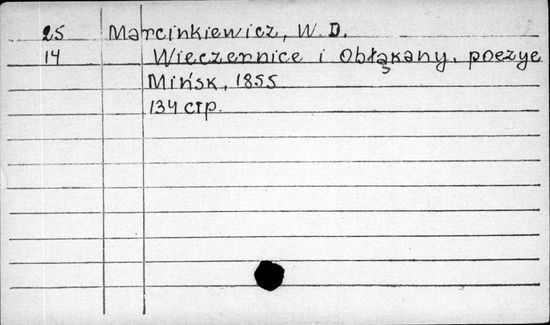 25 Marcinkiewicz, W. D.
14 Wieczernice i Obłąkany. poezye
Mińsk, 1855
134 стр.